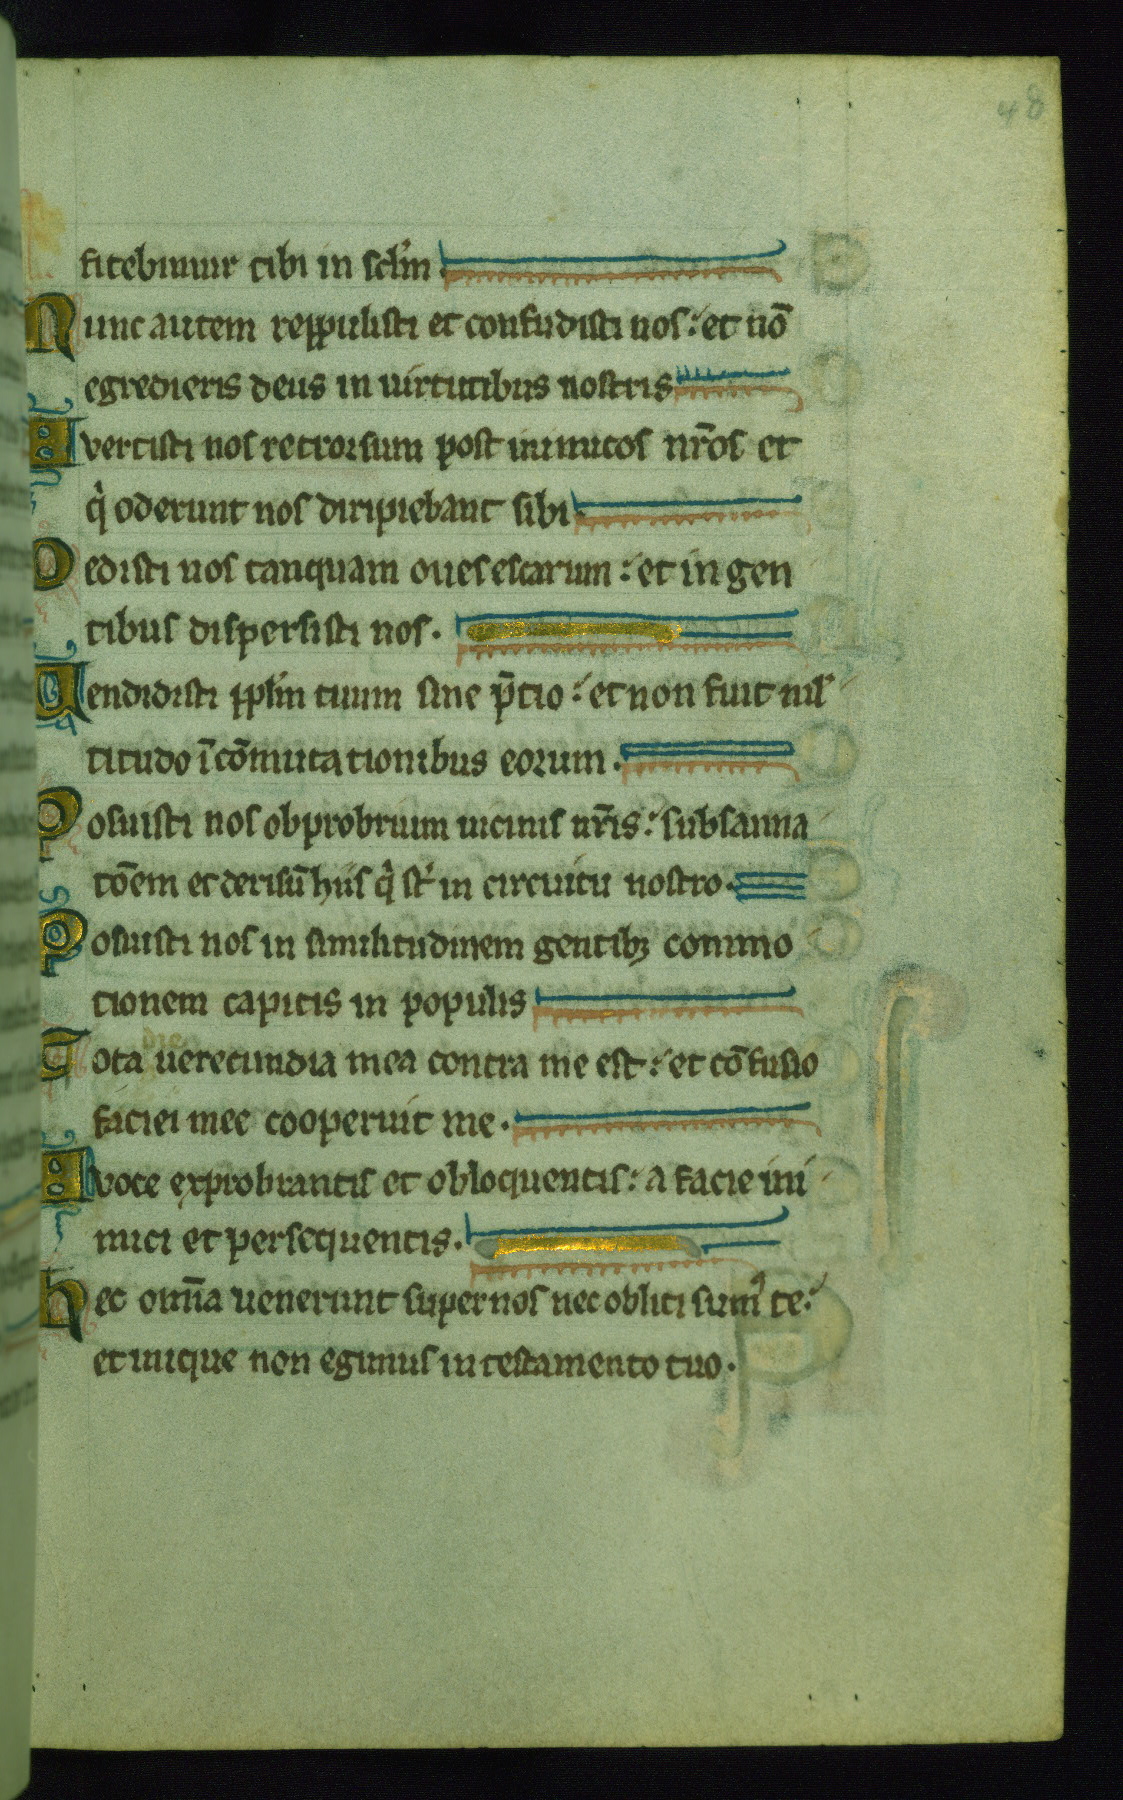 48
fitebimur tibi in scl'm
Nunc autem reppulisti et confudisti nos: et nō
egredieris deus in uirtutibus nostris
Avertisti nos retrorsum post inimicos nr̄os et
q̇ oderunt nos diripiebant sibi
Dedisti nos tanquam oues escarum: et in gen
tibus dispersisti nos.
Uendidisti ppl'm tuum sine p̄tio: et non fuit ml'
titudo ī cōmutationibus eorum.
Posuisti nos obprobrium uicinis nr̄is: subsanna
tōem et derisū hiis q̇ st' in circuitu nostro.
Posuisti nos in similitudinem gentibꝫ commo
tionem capitis in populis
die
Tota uerecundia mea contra me est: et cōfusio
faciei mee cooperuit me.
A voce exprobrantis et obloquentis: a facie ini
mici et persequentis.
Hec om̄ia uenerunt super nos nec obliti sumꝰ te:
et inique non egimus in testamento tuo.